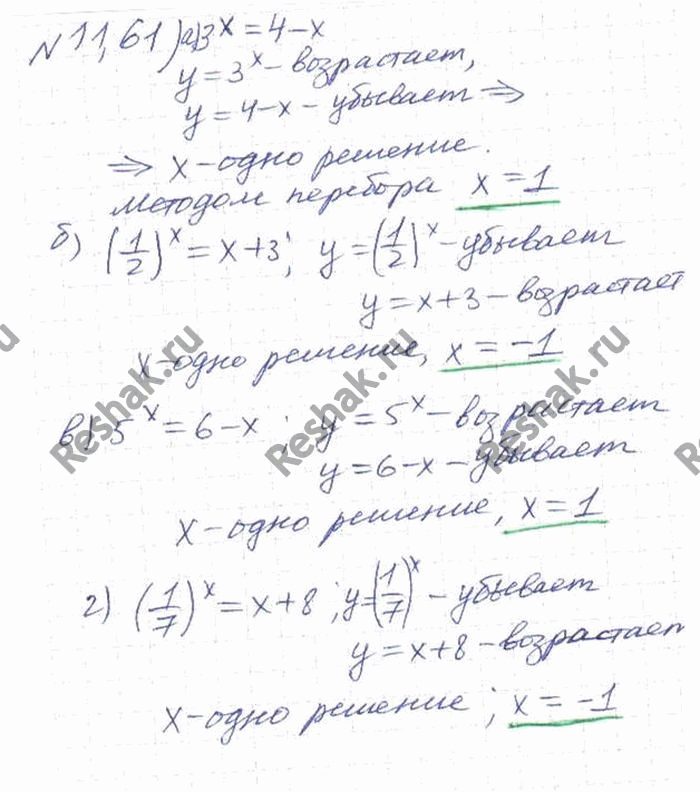 № 11,61) а) 3^x = 4 - x
y = 3^x - возрастает,
y = 4 - x - убывает ⇒
⇒ x - одно решение.
методом перебора x = 1
б) (1/2)^x = x + 3; y = (1/2)^x - убывает
y = x + 3 - возрастает
x - одно решение, x = -1
в) 5^x = 6 - x ; y = 5^x - возрастает
y = 6 - x - убывает
x - одно решение, x = 1
г) (1/7)^x = x + 8 ; y = (1/7)^x - убывает
y = x + 8 - возрастает
x - одно решение ; x = -1
Reshak.ru
Reshak.ru
Reshak.ru